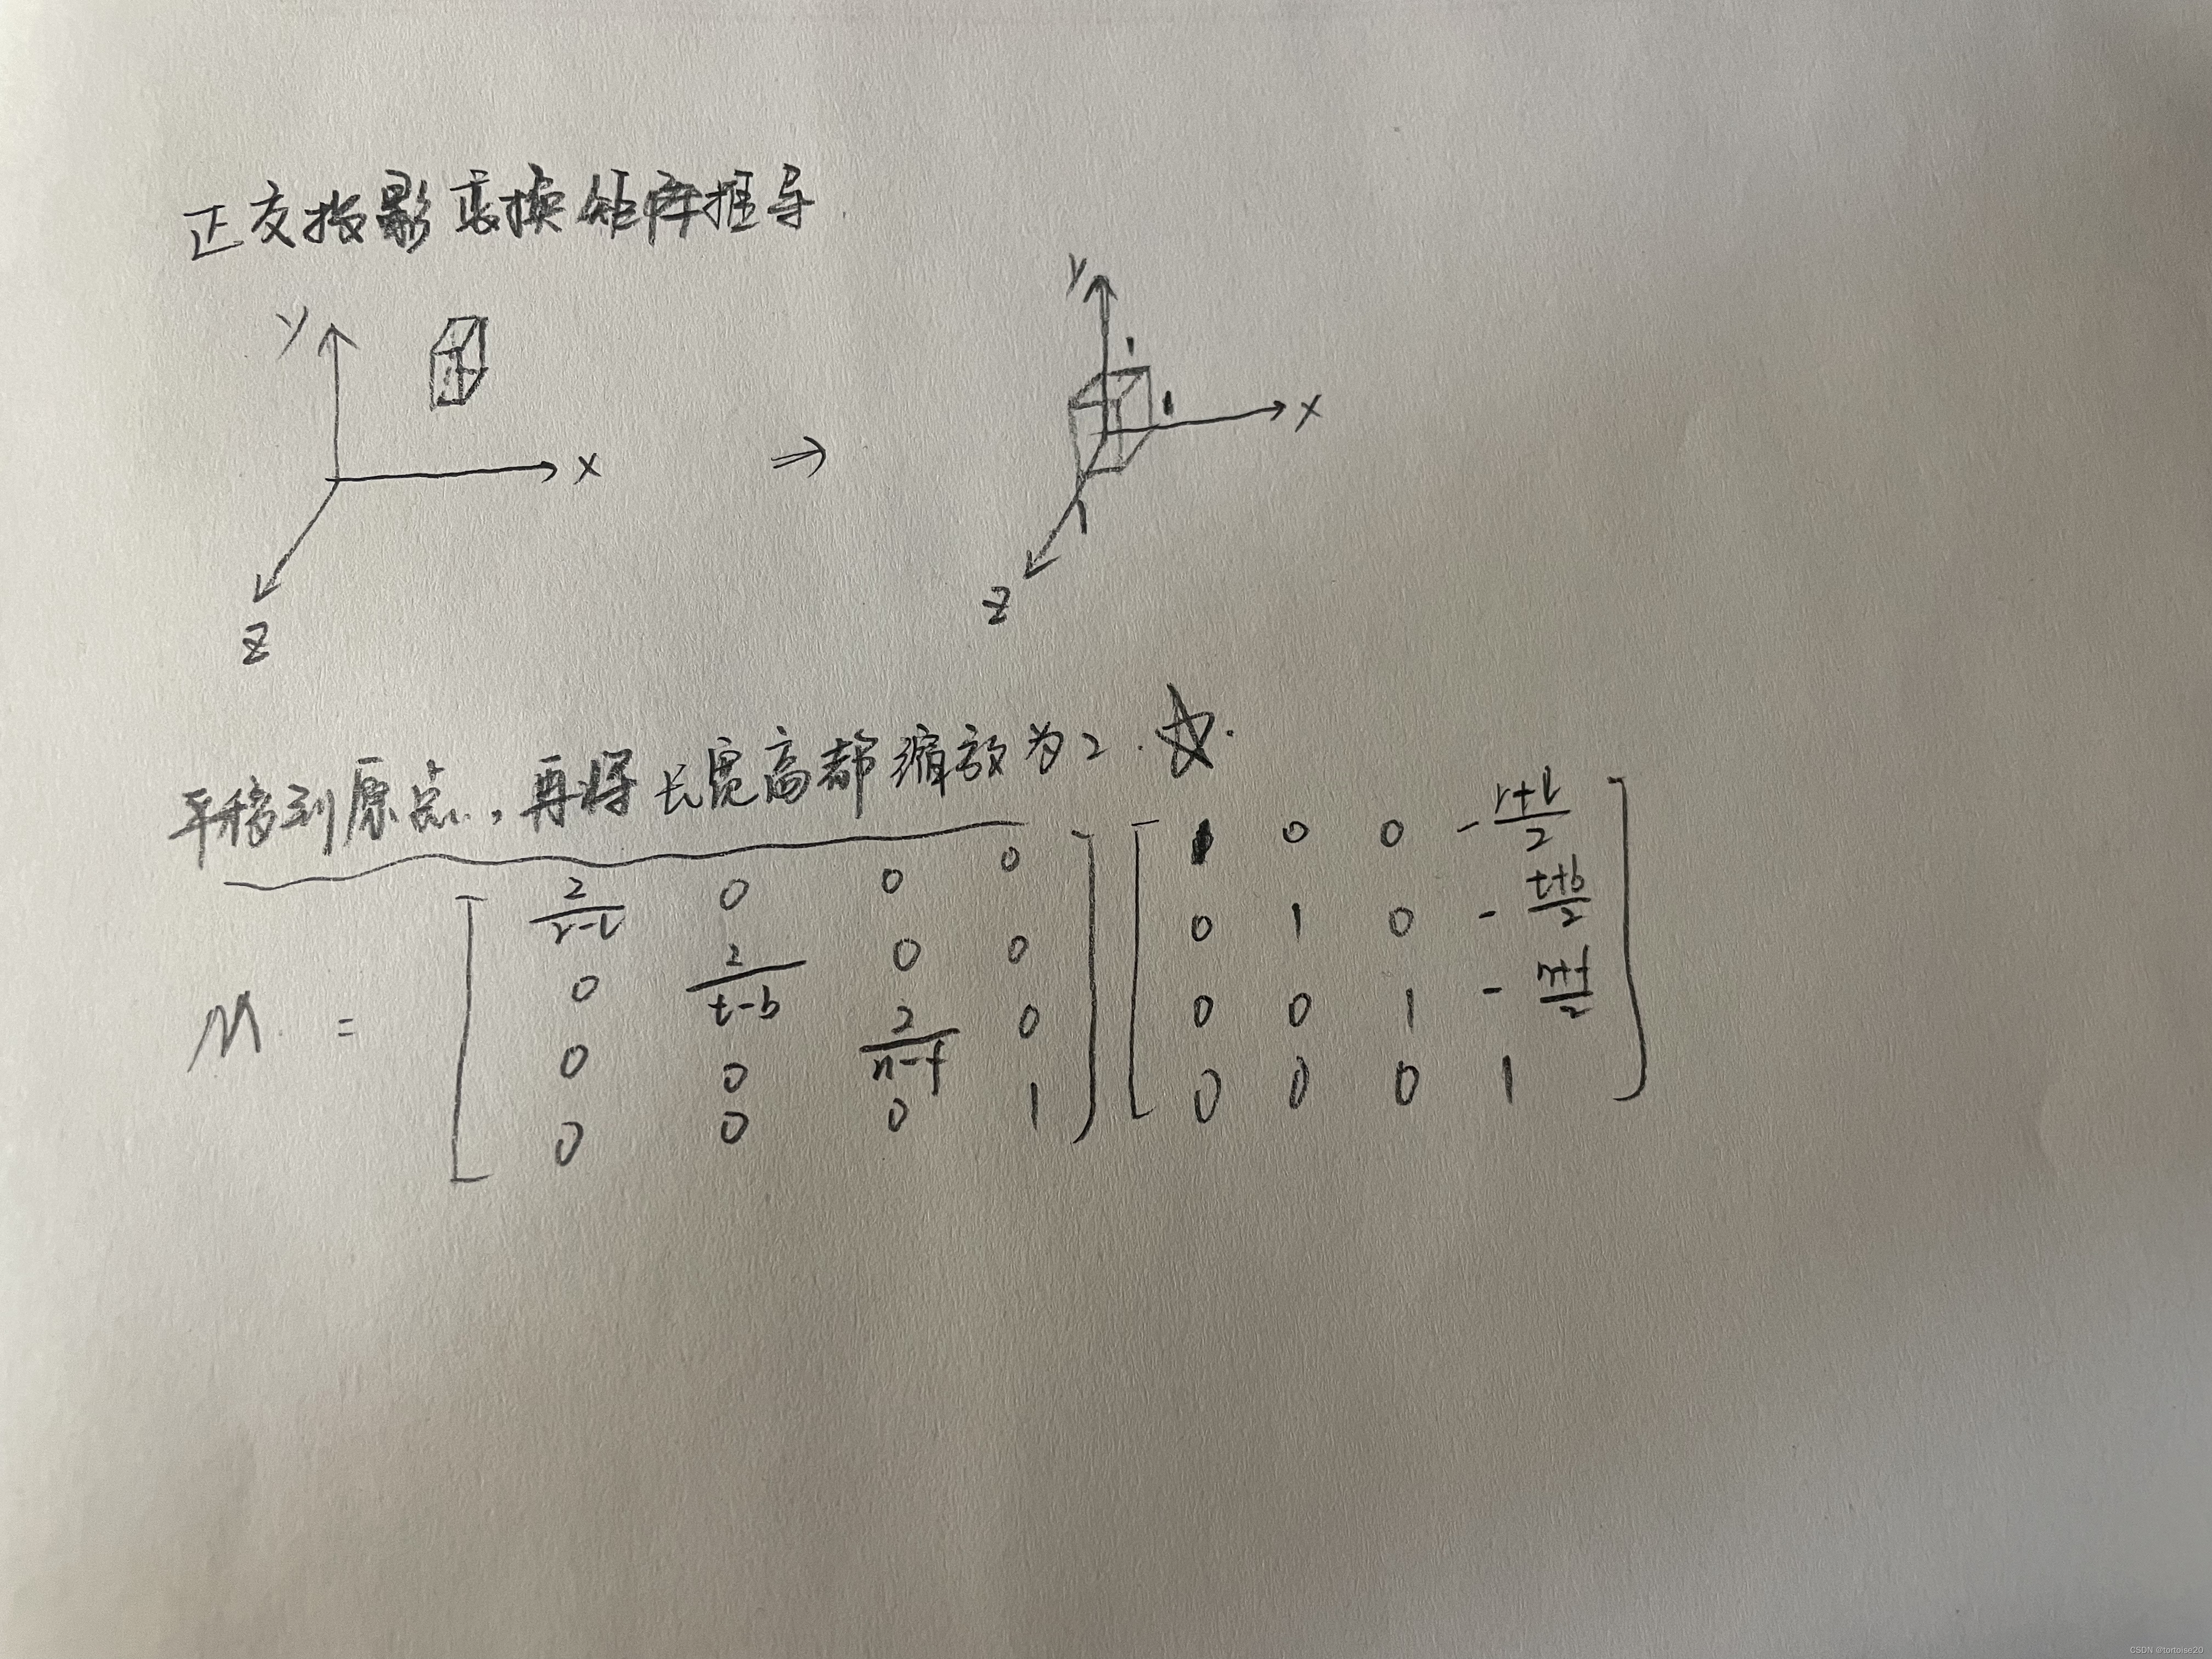 正交投影变换矩阵推导
y y
1
1
x ⇒ x
1
z z
平移到原点,再将长宽高都缩放为2.☆.
M = [ 2/(r-l) 0 0 0 ] [ 1 0 0 -(r+l)/2 ]
[ 0 2/(t-b) 0 0 ] [ 0 1 0 -(t+b)/2 ]
[ 0 0 2/(n-f) 0 ] [ 0 0 1 -(n+f)/2 ]
[ 0 0 0 1 ] [ 0 0 0 1 ]
CSDN @tortoise20